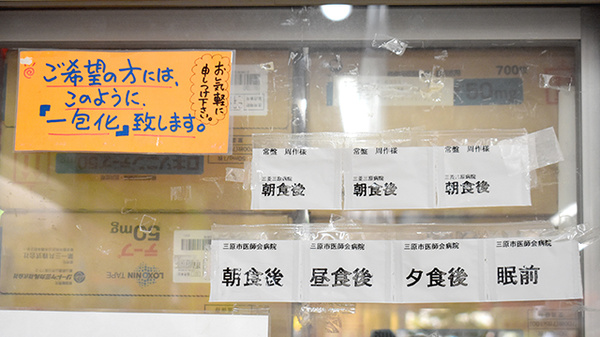 ご希望の方には、
このように、
『一包化』致します。
お気軽に
申しつけ下さい。
700
50mg
常盤 周作様
常盤 周作様
常盤 周作様
三菱三原病院
朝食後
三菱三原病院
朝食後
三菱三原病院
朝食後
三原市医師会病院
朝食後
三原市医師会病院
昼食後
三原市医師会病院
夕食後
三原市医師会病院
眠前
テープ
50mg
LOXONIN TAPE
第一三共株式会社